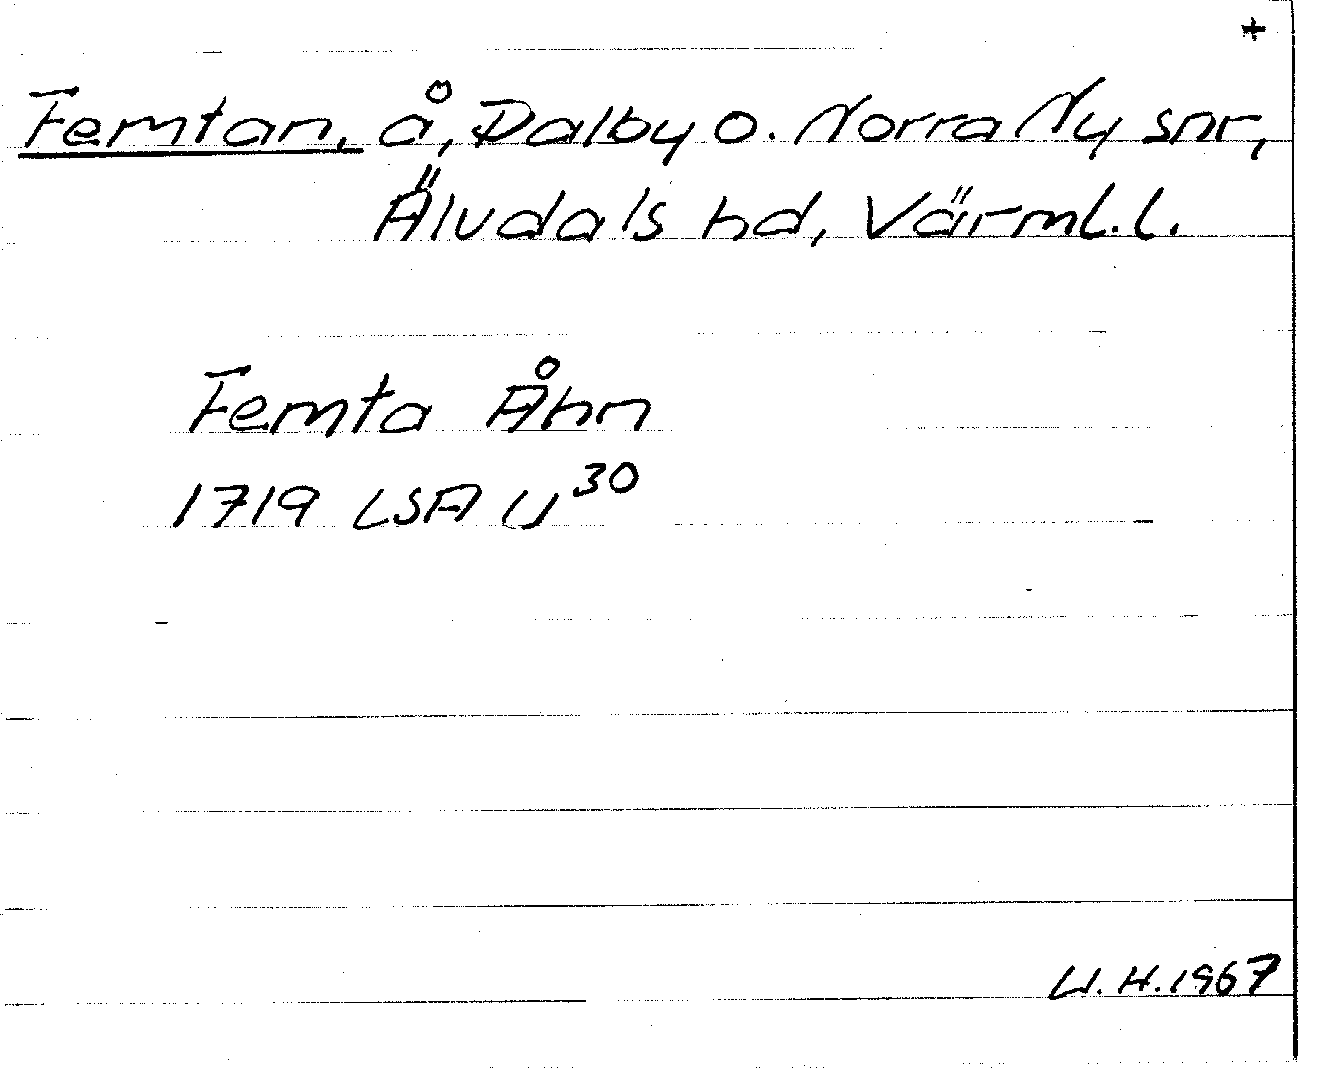 +
Femtan, å, Dalby o. Norra Ny snr,
Älvdals hd, Värml. l.
Femta Åhn
1719 LSA U³⁰
W. H. 1967